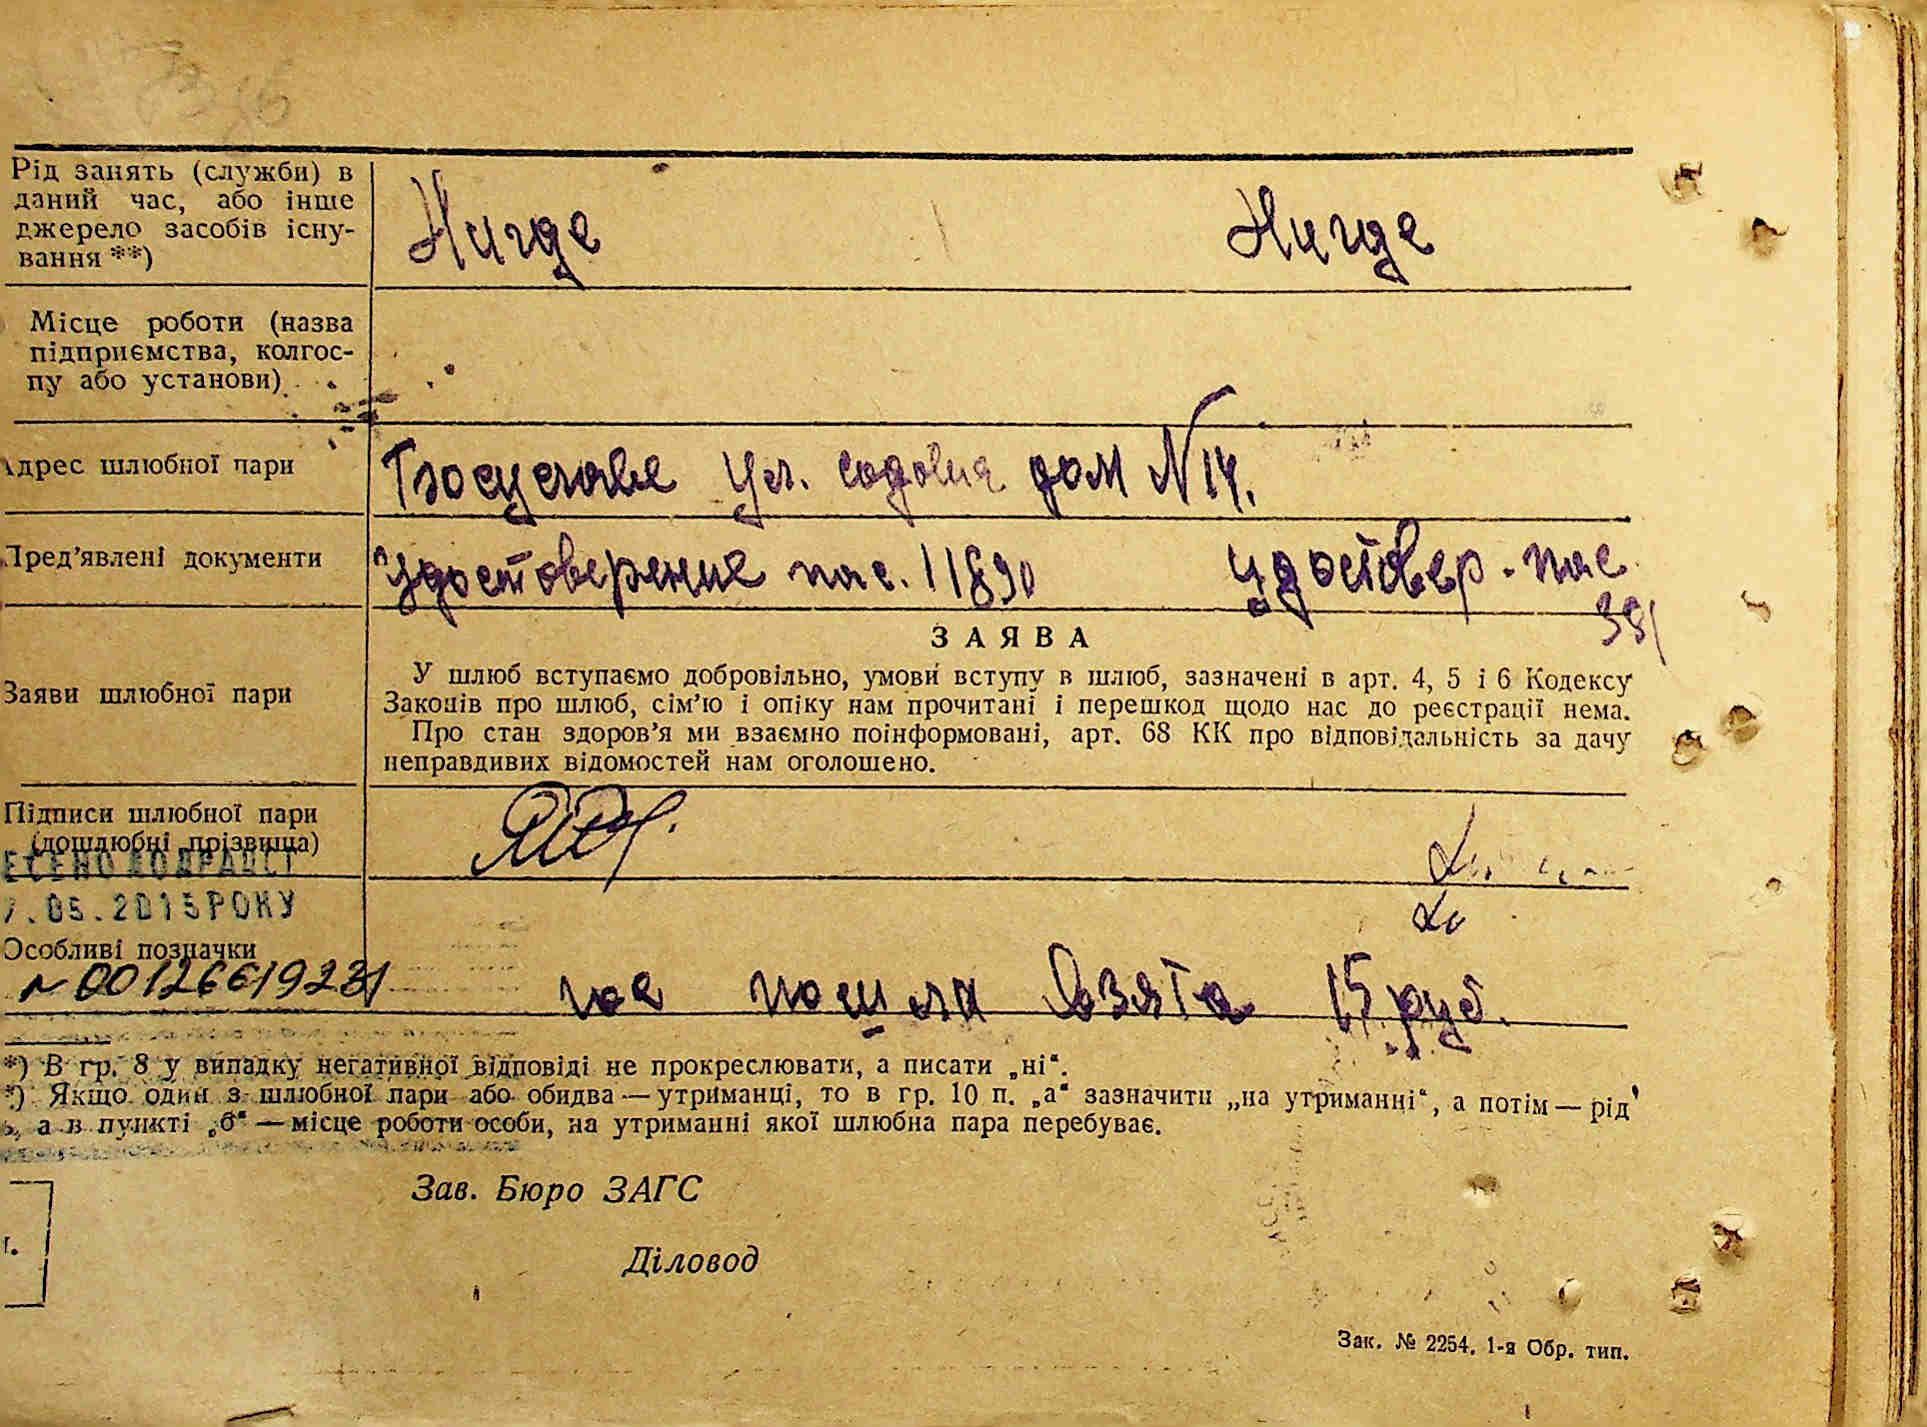 Рід занять (служби) в
даний час, або інше
джерело засобів існу-
вання **)
Нигде Нигде
Місце роботи (назва
підприємства, колгос-
пу або установи)
Адрес шлюбної пари
ул. садовая дом N 14.
Пред’явлені документи
Удостоверение пас. 11890 удостовер. пас
ЗАЯВА
Заяви шлюбної пари
У шлюб вступаємо добровільно, умови вступу в шлюб, зазначені в арт. 4, 5 і 6 Кодексу
Законів про шлюб, сім’ю і опіку нам прочитані і перешкод щодо нас до реєстрації нема.
Про стан здоров’я ми взаємно поінформовані, арт. 68 КК про відповідальність за дачу
неправдивих відомостей нам оголошено.
Підписи шлюбної пари
(дошлюбні прізвища)
.05.2015 РОКУ
Особливі позначки
N 00126619231
гос пошли взята 15 руб.
*) В гр. 8 у випадку негативної відповіді не прокреслювати, а писати „ні“.
*) Якщо один з шлюбної пари або обидва — утриманці, то в гр. 10 п. „а“ зазначити „на утриманні“, а потім — рід
, а в пункті „б“ — місце роботи особи, на утриманні якої шлюбна пара перебуває.
Зав. Бюро ЗАГС
Діловод
г.
Зак. № 2254. 1-я Обр. тип.